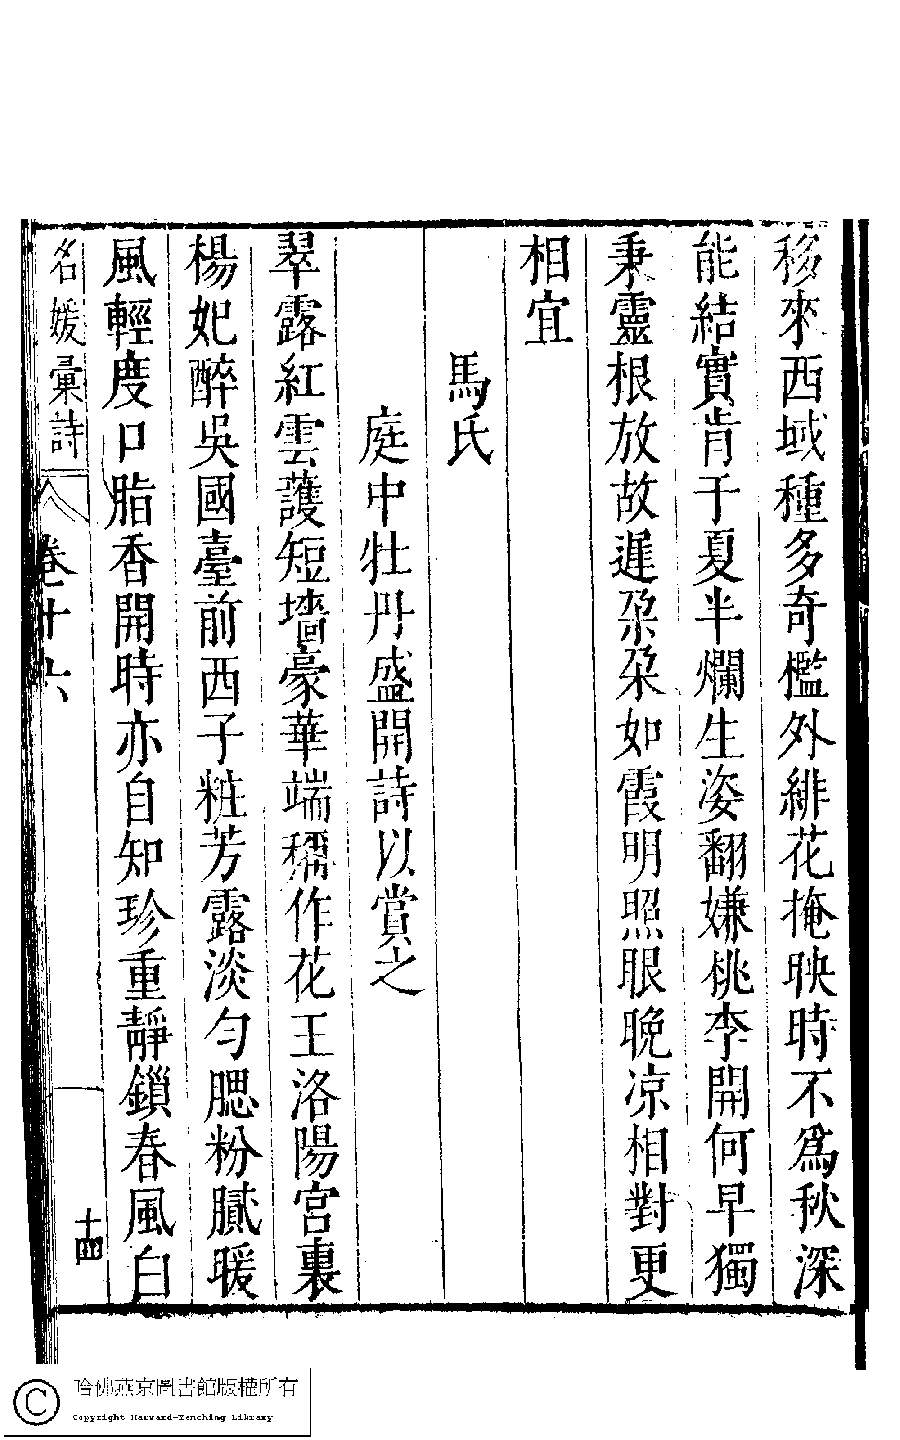 移來西域種多奇檻外緋花掩映時不爲秋深
能結實肯于夏半爛生姿翻嫌桃李開何早獨
秉靈根放故遲朶朶如霞明照眼晚凉相對更
相宜
馬氏
庭中牡丹盛開詩以賞之
翠露紅雲護短墻豪華端稱作花王洛陽宮裏
楊妃醉吳國臺前西子粧芳露淡勻腮粉膩暖
風輕度口脂香開時亦自知珍重靜鎖春風白
名媛彙詩
卷十六
十四
哈佛燕京圖書館版權所有
Copyright Harvard-Yenching Library